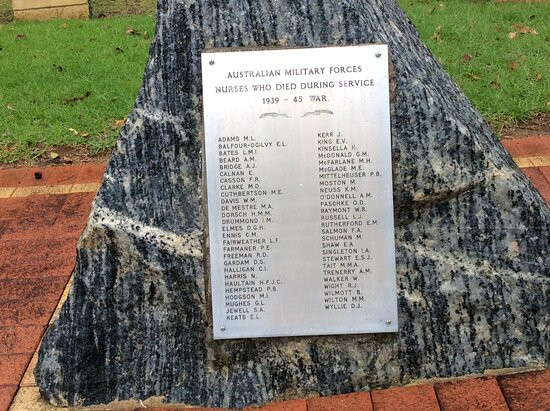 AUSTRALIAN MILITARY FORCES
NURSES WHO DIED DURING SERVICE
1939 - 45 WAR
ADAMS M.L.
BALFOUR-OGILVY E.L.
BATES L.M.I.
BEARD A.M.
BRIDGE A.J.
CALNAN E.
CASSON F.R.
CLARKE M.D.
CUTHBERTSON M.E.
DAVIS W.M.
DE MESTRE M.A.
DORSCH H.M.M.
DRUMMOND I.M.
ELMES D.G.H.
ENNIS C.M.
FAIRWEATHER L.F.
FARMANER P.E.
FREEMAN R.D.
GARDAM D.S.
HALLIGAN C.I.
HARRIS N.
HAULTAIN H.F.J.C.
HEMPSTEAD P.B.
HODGSON M.I.
HUGHES G.L.
JEWELL S.A.
KEATS E.L.
KERR J.
KING E.V.
KINSELLA K.
McDONALD G.M.
McFARLANE M.H.
McGLADE M.E.
MITTELHEUSER P.B.
MOSTON M.
NEUSS K.M.
O'DONNELL A.M.
PASCHKE O.D.
RAYMONT W.R.
RUSSELL L.J.
RUTHERFORD E.M.
SALMON F.A.
SCHUMAN M.
SHAW E.A.
SINGLETON I.A.
STEWART E.S.J.
TAIT M.M.A.
TRENERRY A.M.
WALKER W.
WIGHT R.J.
WILMOTT B.
WILTON M.M.
WYLLIE D.J.